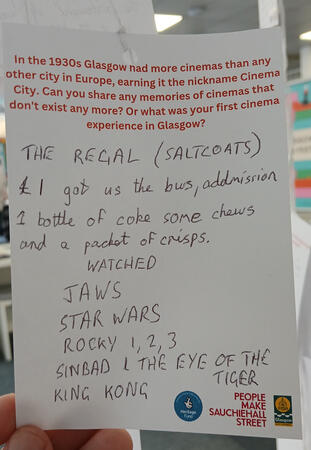 In the 1930s Glasgow had more cinemas than any
other city in Europe, earning it the nickname Cinema
City. Can you share any memories of cinemas that
don't exist any more? Or what was your first cinema
experience in Glasgow?
THE REGAL (SALTCOATS)
£1 got us the bus, addmission
1 bottle of coke some chews
and a packet of crisps.
WATCHED
JAWS
STAR WARS
ROCKY 1, 2, 3
SINBAD & THE EYE OF THE
TIGER
KING KONG
Heritage
Fund
PEOPLE
MAKE
SAUCHIEHALL
STREET
Glasgow